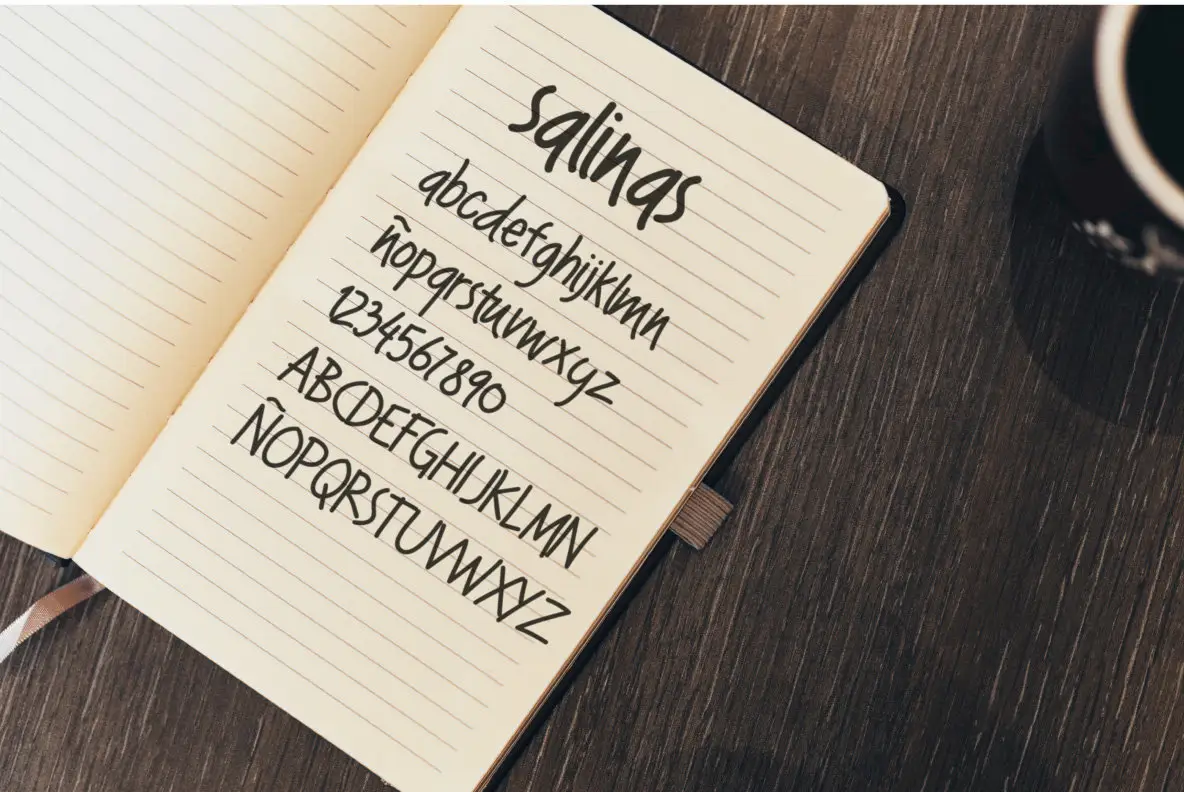 salinas
abcdefghijklmn
ñopqrstuvwxyz
1234567890
ABCDEFGHIJKLMN
ÑOPQRSTUVWXYZ